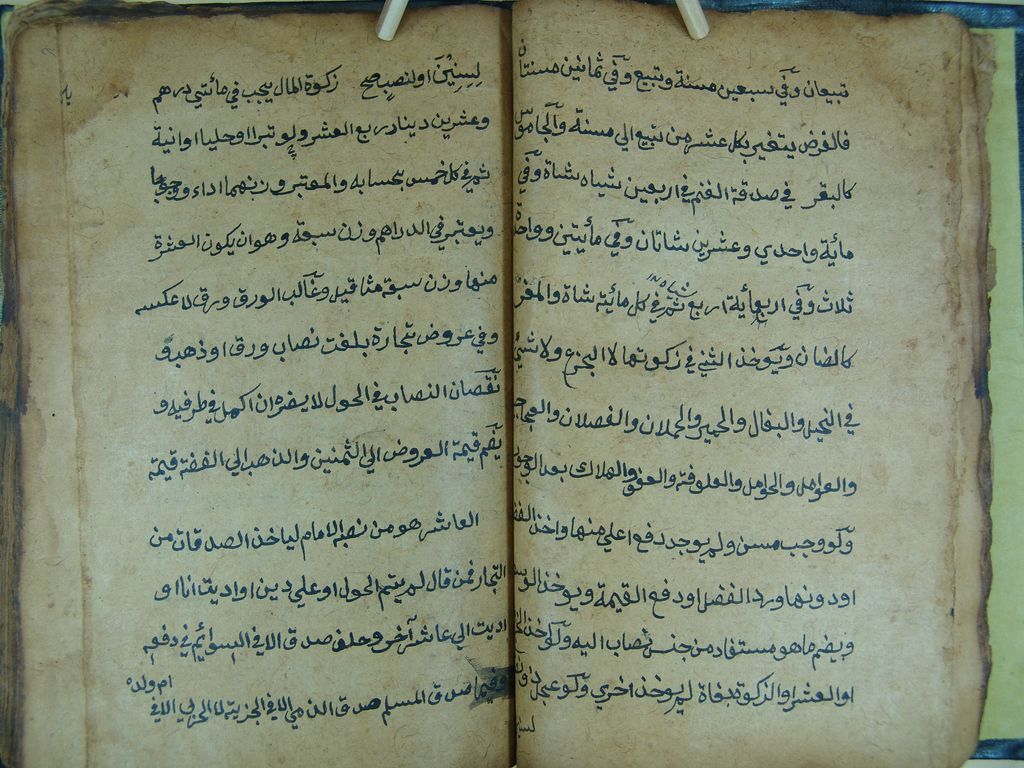 تبيعان وفي سبعين مسنة وتبيع وفي ثمانين مسنتان
فالفرض يتغير بكل عشر من تبيع الي مسنة والجاموس
كالبقر في صدقة الغنم في اربعين شياه شاة وفي
مائة واحدي وعشرين شاتان وفي مأيتين وواحدة
ثلاث وفي اربعمائة اربع ثم في كل مائة شاة والمعز
كالضان ويؤخذ الثني في زكوتها لا الجذع ولا شئ
في الخيل والبغال والحمير والحملان والفصلان والعجاجيل
والعوامل والحوامل والعلوفة والعفو والهلاك بعد الوجوب
ولو وجب مسن ولم يوجد دفع اعلي منها واخذ الفضل
او دونها ورد الفضل او دفع القيمة ويؤخذ الوسط
ويضم ما هو مستفاد من جنس نصاب اليه ولو اخذ
او العشر او الزكوة بغاة لم يوخذ اخري ولو عجل ذو نصاب
لسنين او لنصب صح زكوة المال يجب في مائتي درهم
وعشرين دينارا ربع العشر ولو تبرا او حليا او انية
ثم في كل خمس بحسابه والمعتبر وزنهما اداء ووجوبا
ويعتبر في الدراهم وزن سبعة وهو ان يكون العشرة
منها وزن سبعة مثاقيل وغالب الورق ورق لا عكسه
وفي عروض تجارة بلغت نصاب ورق او ذهب و
نقصان النصاب في الحول لا يضره ان اكمل في طرفيه و
يضم قيمة العروض الي الثمنين والذهب الي الفضة قيمة
العاشر هو من نصبه الامام لياخذ الصدقات من
التجار فمن قال لم يتم الحول او علي دين او اديت انا او
اديت الي عاشر آخر وحلف صدق الا في السوائم في دفعه
وفيما صدق المسلم صدق الذمي الا في الجزية لا الحربي الا في
ام ولده